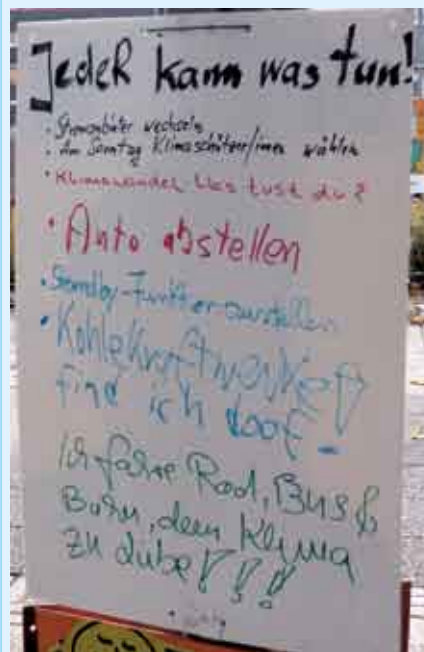 Jeder kann was tun!
• Stromanbieter wechseln
• Am Sonntag Klimaschützer/innen wählen
• Klimawandel. Was tust du?
• Auto abstellen
• Standby-Funktion
• Kohlekraftwerke
find ich doof!
Ich fahre Rad, Bus &
Bahn, dem Klima
zu Liebe!!!